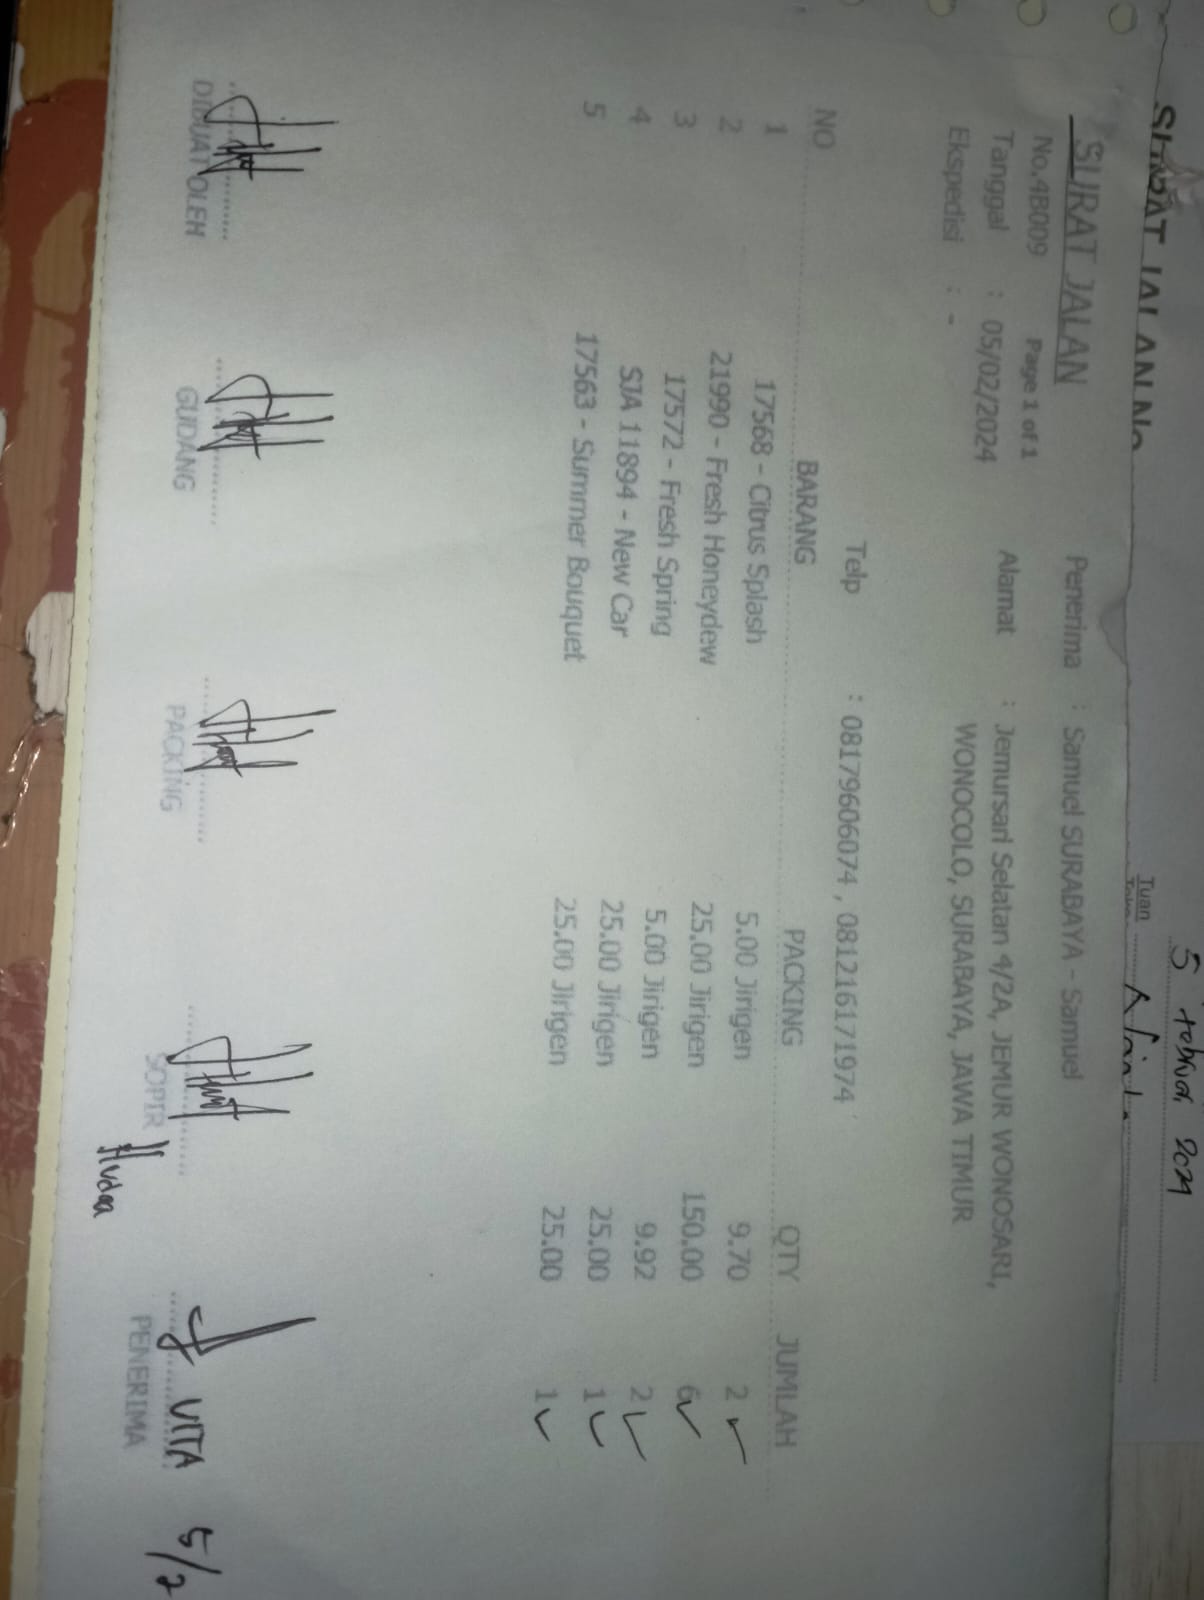 SURAT JALAN No
5 Februari 2024
Tuan
SURAT JALAN
No.4B009 Page 1 of 1
Tanggal : 05/02/2024
Ekspedisi : -
Penerima : Samuel SURABAYA - Samuel
Alamat : Jemursari Selatan 4/2A, JEMUR WONOSARI,
WONOCOLO, SURABAYA, JAWA TIMUR
Telp : 08179606074 , 081216171974
NO BARANG PACKING QTY JUMLAH
1 17568 - Citrus Splash 5.00 Jirigen 9.70 2 ✓
2 21990 - Fresh Honeydew 25.00 Jirigen 150.00 6 ✓
3 17572 - Fresh Spring 5.00 Jirigen 9.92 2 ✓
4 SJA 11894 - New Car 25.00 Jirigen 25.00 1 ✓
5 17563 - Summer Bouquet 25.00 Jirigen 25.00 1 ✓
VITA 5/2
DIBUAT OLEH GUDANG PACKING SOPIR PENERIMA
Hudaa